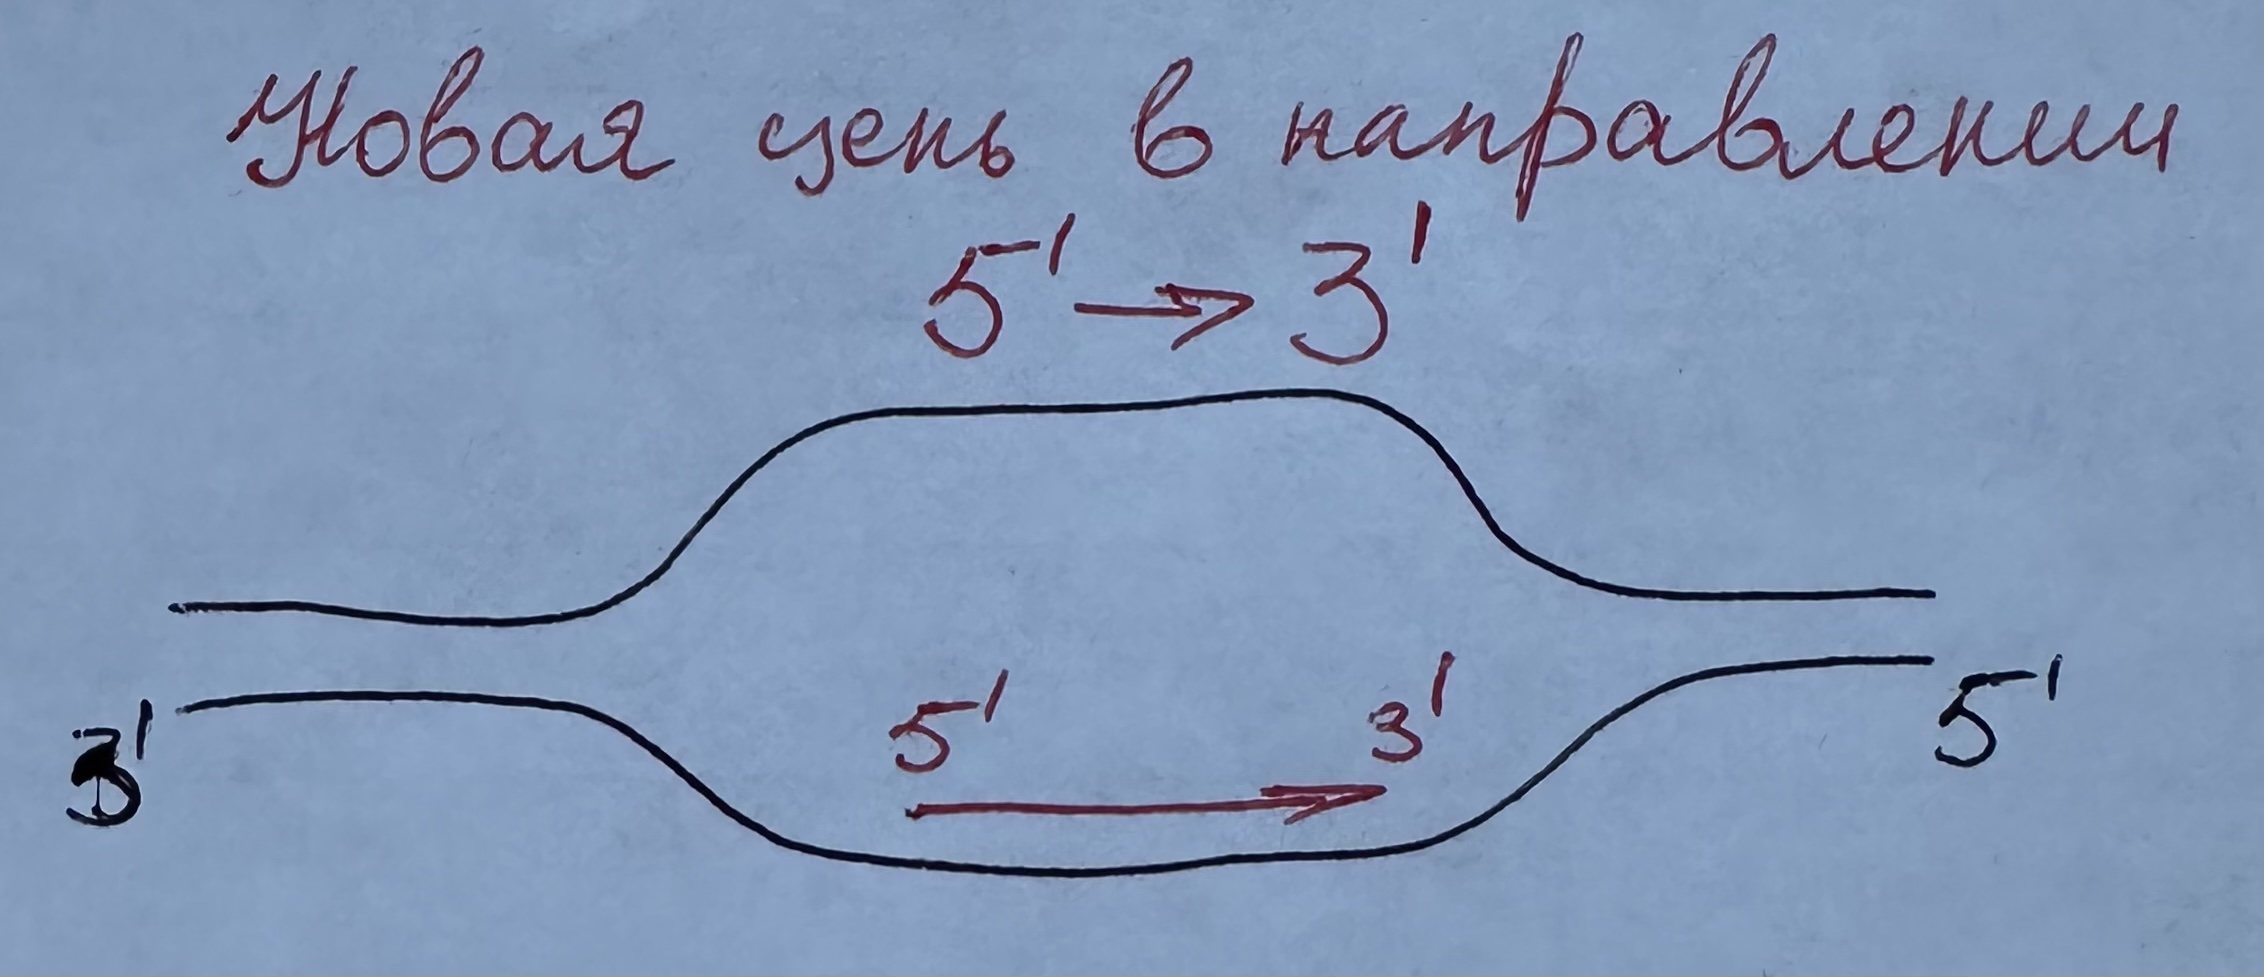 Новая цепь в направлении
5' → 3'
5' 3'
3' 5'